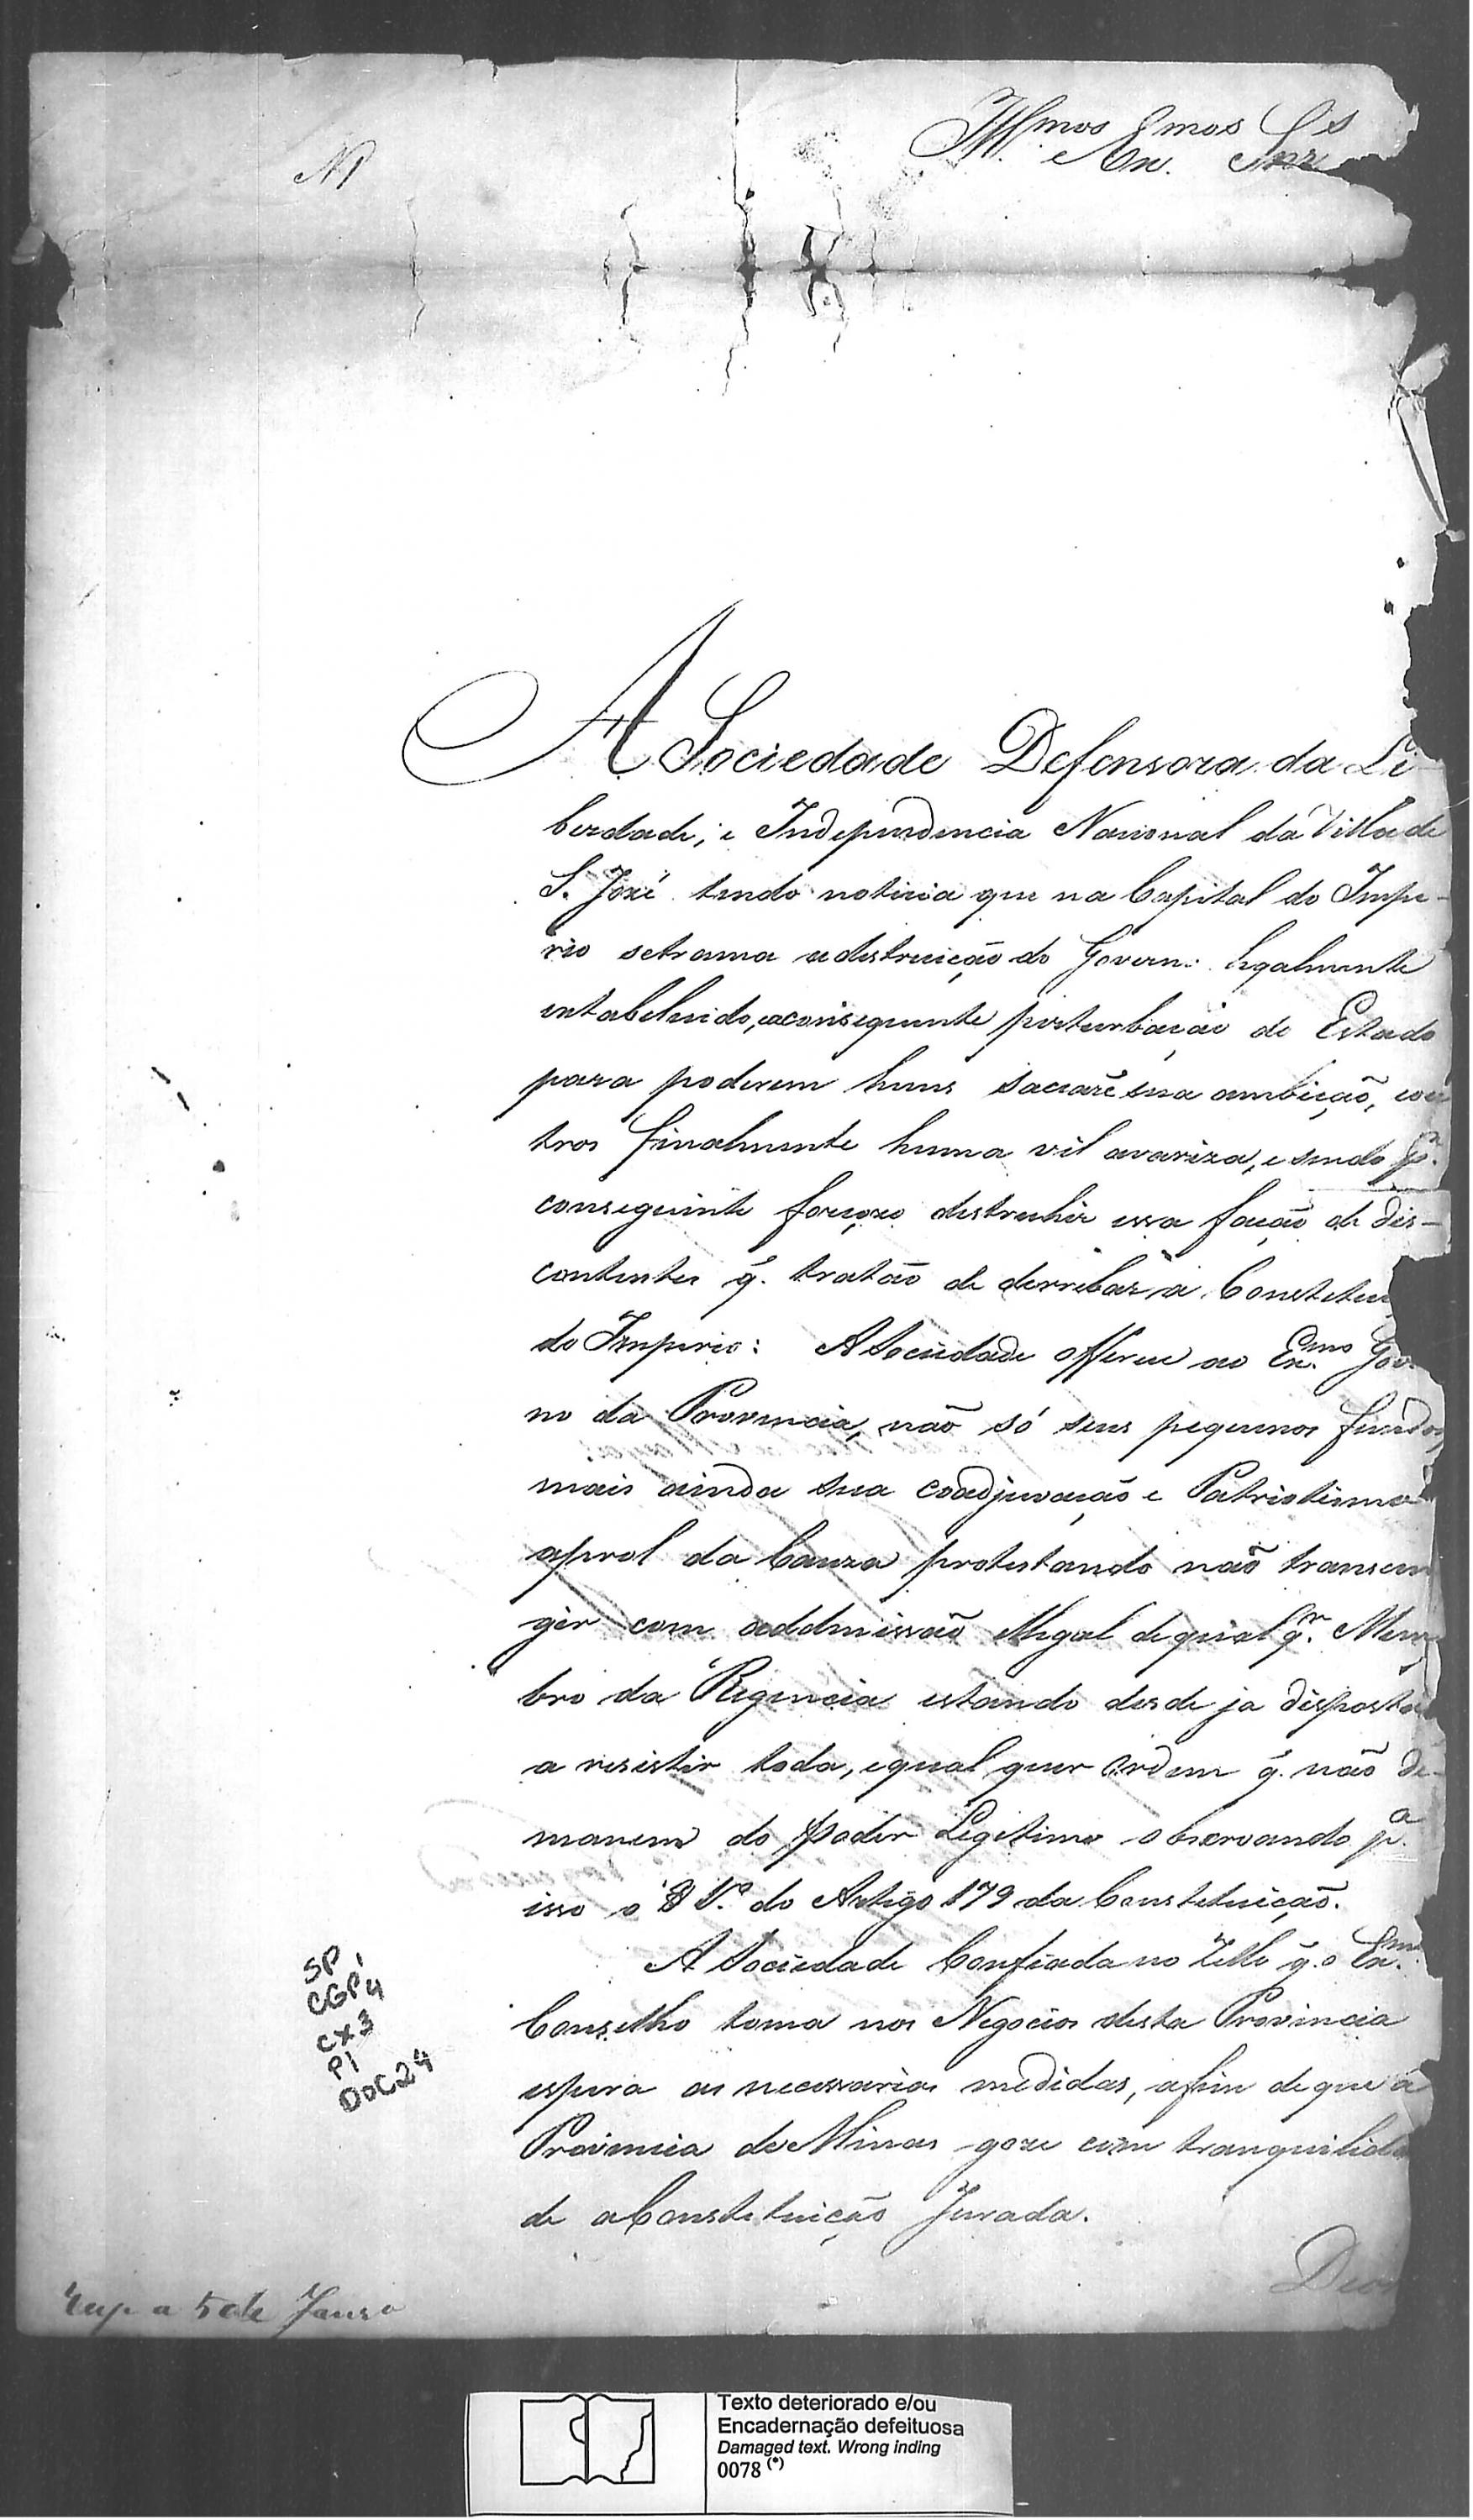 Illmos e Exmos Snrs
N1
A Sociedade Defensora da Li-
berdade, e Independencia Nacional da Villa de
S. Jozé tendo noticia que na Capital do Impe-
rio setrama adistruição do Govern. legalmente
estabelecido, aconsequente perturbação do Estado
para poderem huns saciarē sua ambição, eou
tros finalmente huma vil avariza, e sendo pr.
conseguinte forçozo distruhir essa facção de dis-
contentes q̃. tratão de derribar a Constetui
do Imperio: A Sociedade offerece ao Exmo. Gov
no da Provincia, não só seus pequenos fundos
mais ainda sua coadjuvação e Patriotismo
aprol da Cauza protestando não transem
gir com addmissão illegal de qual qr. Mem
bro da Regencia estando desde ja disposta
a resistir toda, equal quer Ordem q̃. não de-
manem do poder Legitimo observando pa.
isso o § 1º. do Artigo 179 da Constetuição.
A Sociedade Confiada no Zello q̃. o Exmo.
Conselho toma nos Negocios desta Provincia
espera as necessarias medidas, afim de que a
Provincia de Minas goze com tranquilida
de a Constetuição Jurada.
Deos
Resp. a 5 de Janro
SP
CGP1
CX3
P1
DOC24
Texto deteriorado e/ou
Encadernação defeituosa
Damaged text. Wrong inding
0078 (*)